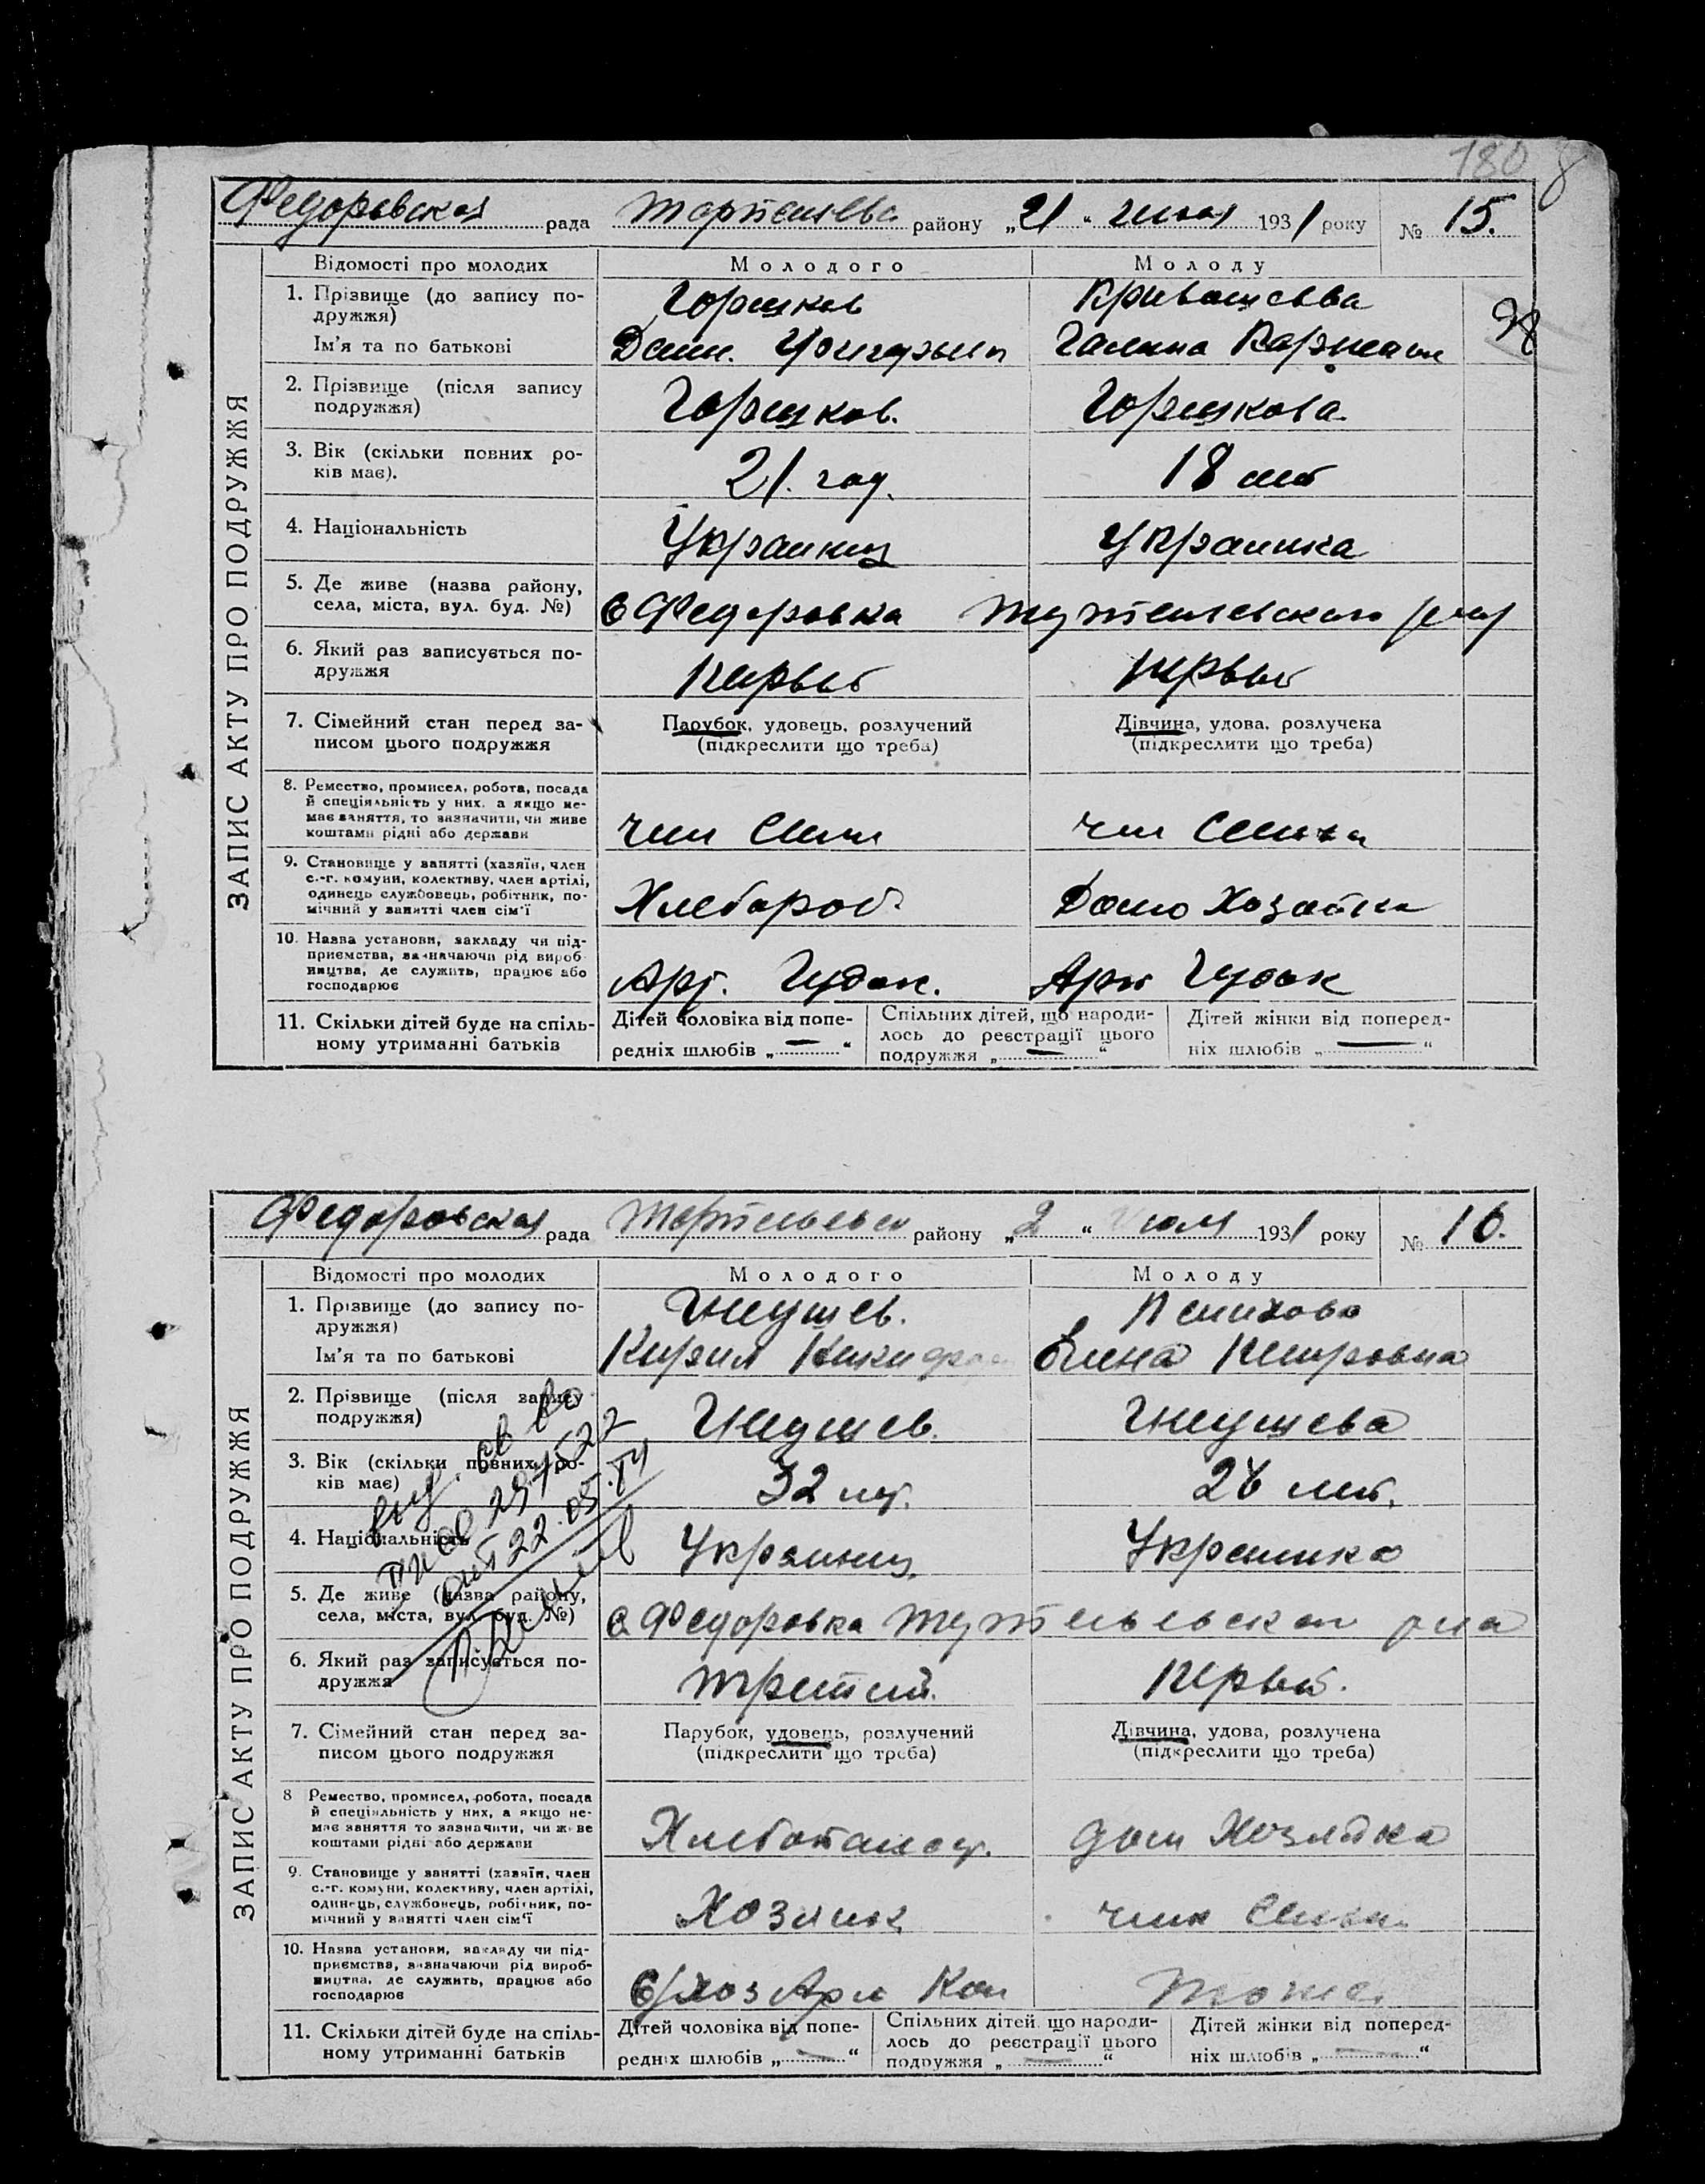 180 8
Федоровская рада района району „21“ июня 1931 року № 15.
Відомості про молодих Молодого Молоду
ЗАПИС АКТУ ПРО ПОДРУЖЖЯ
1. Прізвище (до запису по- Горшков Кривошеева
дружжя)
Ім'я та по батькові Галина 98
2. Прізвище (після запису
подружжя) Горшков. Горшкова.
3. Вік (скільки повних ро-
ків має). 21. год. 18 лет
4. Національність Украинец Украинка
5. Де живе (назва району,
села, міста, вул. буд. №) С Федоровка
6. Який раз записується по-
дружжя Первый Первый
7. Сімейний стан перед за- Парубок, удовець, розлучений Дівчина, удова, розлучена
писом цього подружжя (підкреслити що треба) (підкреслити що треба)
8. Ремество, промисел, робота, посада
й спеціяльність у них, а якщо не-
має заняття, то зазначити, чи живе
коштами рідні або держави член семьи член семьи
9. Становище у занятті (хазяїн, член
с.-г. комуни, колективу, член артілі,
одинець службовець, робітник, по-
мічний у занятті член сім'ї Хлебороб. Домо Хозяйка
10. Назва установи, закладу чи під-
приємства, зазначаючи рід вироб-
ництва, де служить, працює або
господарює Арт. Гудок. Арт Гудок
11. Скільки дітей буде на спіль- Дітей чоловіка від попе- Спільних дітей, що народи- Дітей жінки від поперед-
ному утриманні батьків редніх шлюбів „—“ лось до реєстрації цього ніх шлюбів „—“
подружжя „—“
Федоровская рада району „2“ июля 1931 року № 16.
Відомості про молодих Молодого Молоду
ЗАПИС АКТУ ПРО ПОДРУЖЖЯ
1. Прізвище (до запису по- Гнеушев.
дружжя)
Ім'я та по батькові Кирил Елена
2. Прізвище (після запису
подружжя) Гнеушев. Гнеушева
3. Вік (скільки повних ро-
ків має) 32 26 лет.
4. Національність Украинец Украинка
5. Де живе (назва району,
села, міста, вул. буд. №) С Федоровка
6. Який раз записується по-
дружжя третий. Первый.
7. Сімейний стан перед за- Парубок, удовець, розлучений Дівчина, удова, розлучена
писом цього подружжя (підкреслити що треба) (підкреслити що треба)
8 Ремество, промисел, робота, посада
й спеціяльність у них, а якщо не-
має заняття то зазначити, чи живе
коштами рідні або держави Дом Хозяйка
9. Становище у занятті (хазяїн, член
с.-г. комуни, колективу, член артілі,
одинець, службовець, робітник, по-
мічний у занятті член сім'ї Хозяин член семьи
10. Назва установи, закладу чи під-
приємства, зазначаючи рід вироб-
ництва, де служить, працює або
господарює тоже
11. Скільки дітей буде на спіль- Дітей чоловіка від попе- Спільних дітей, що народи- Дітей жінки від поперед-
ному утриманні батьків редніх шлюбів „—“ лось до реєстрації цього ніх шлюбів „—“
подружжя „—“